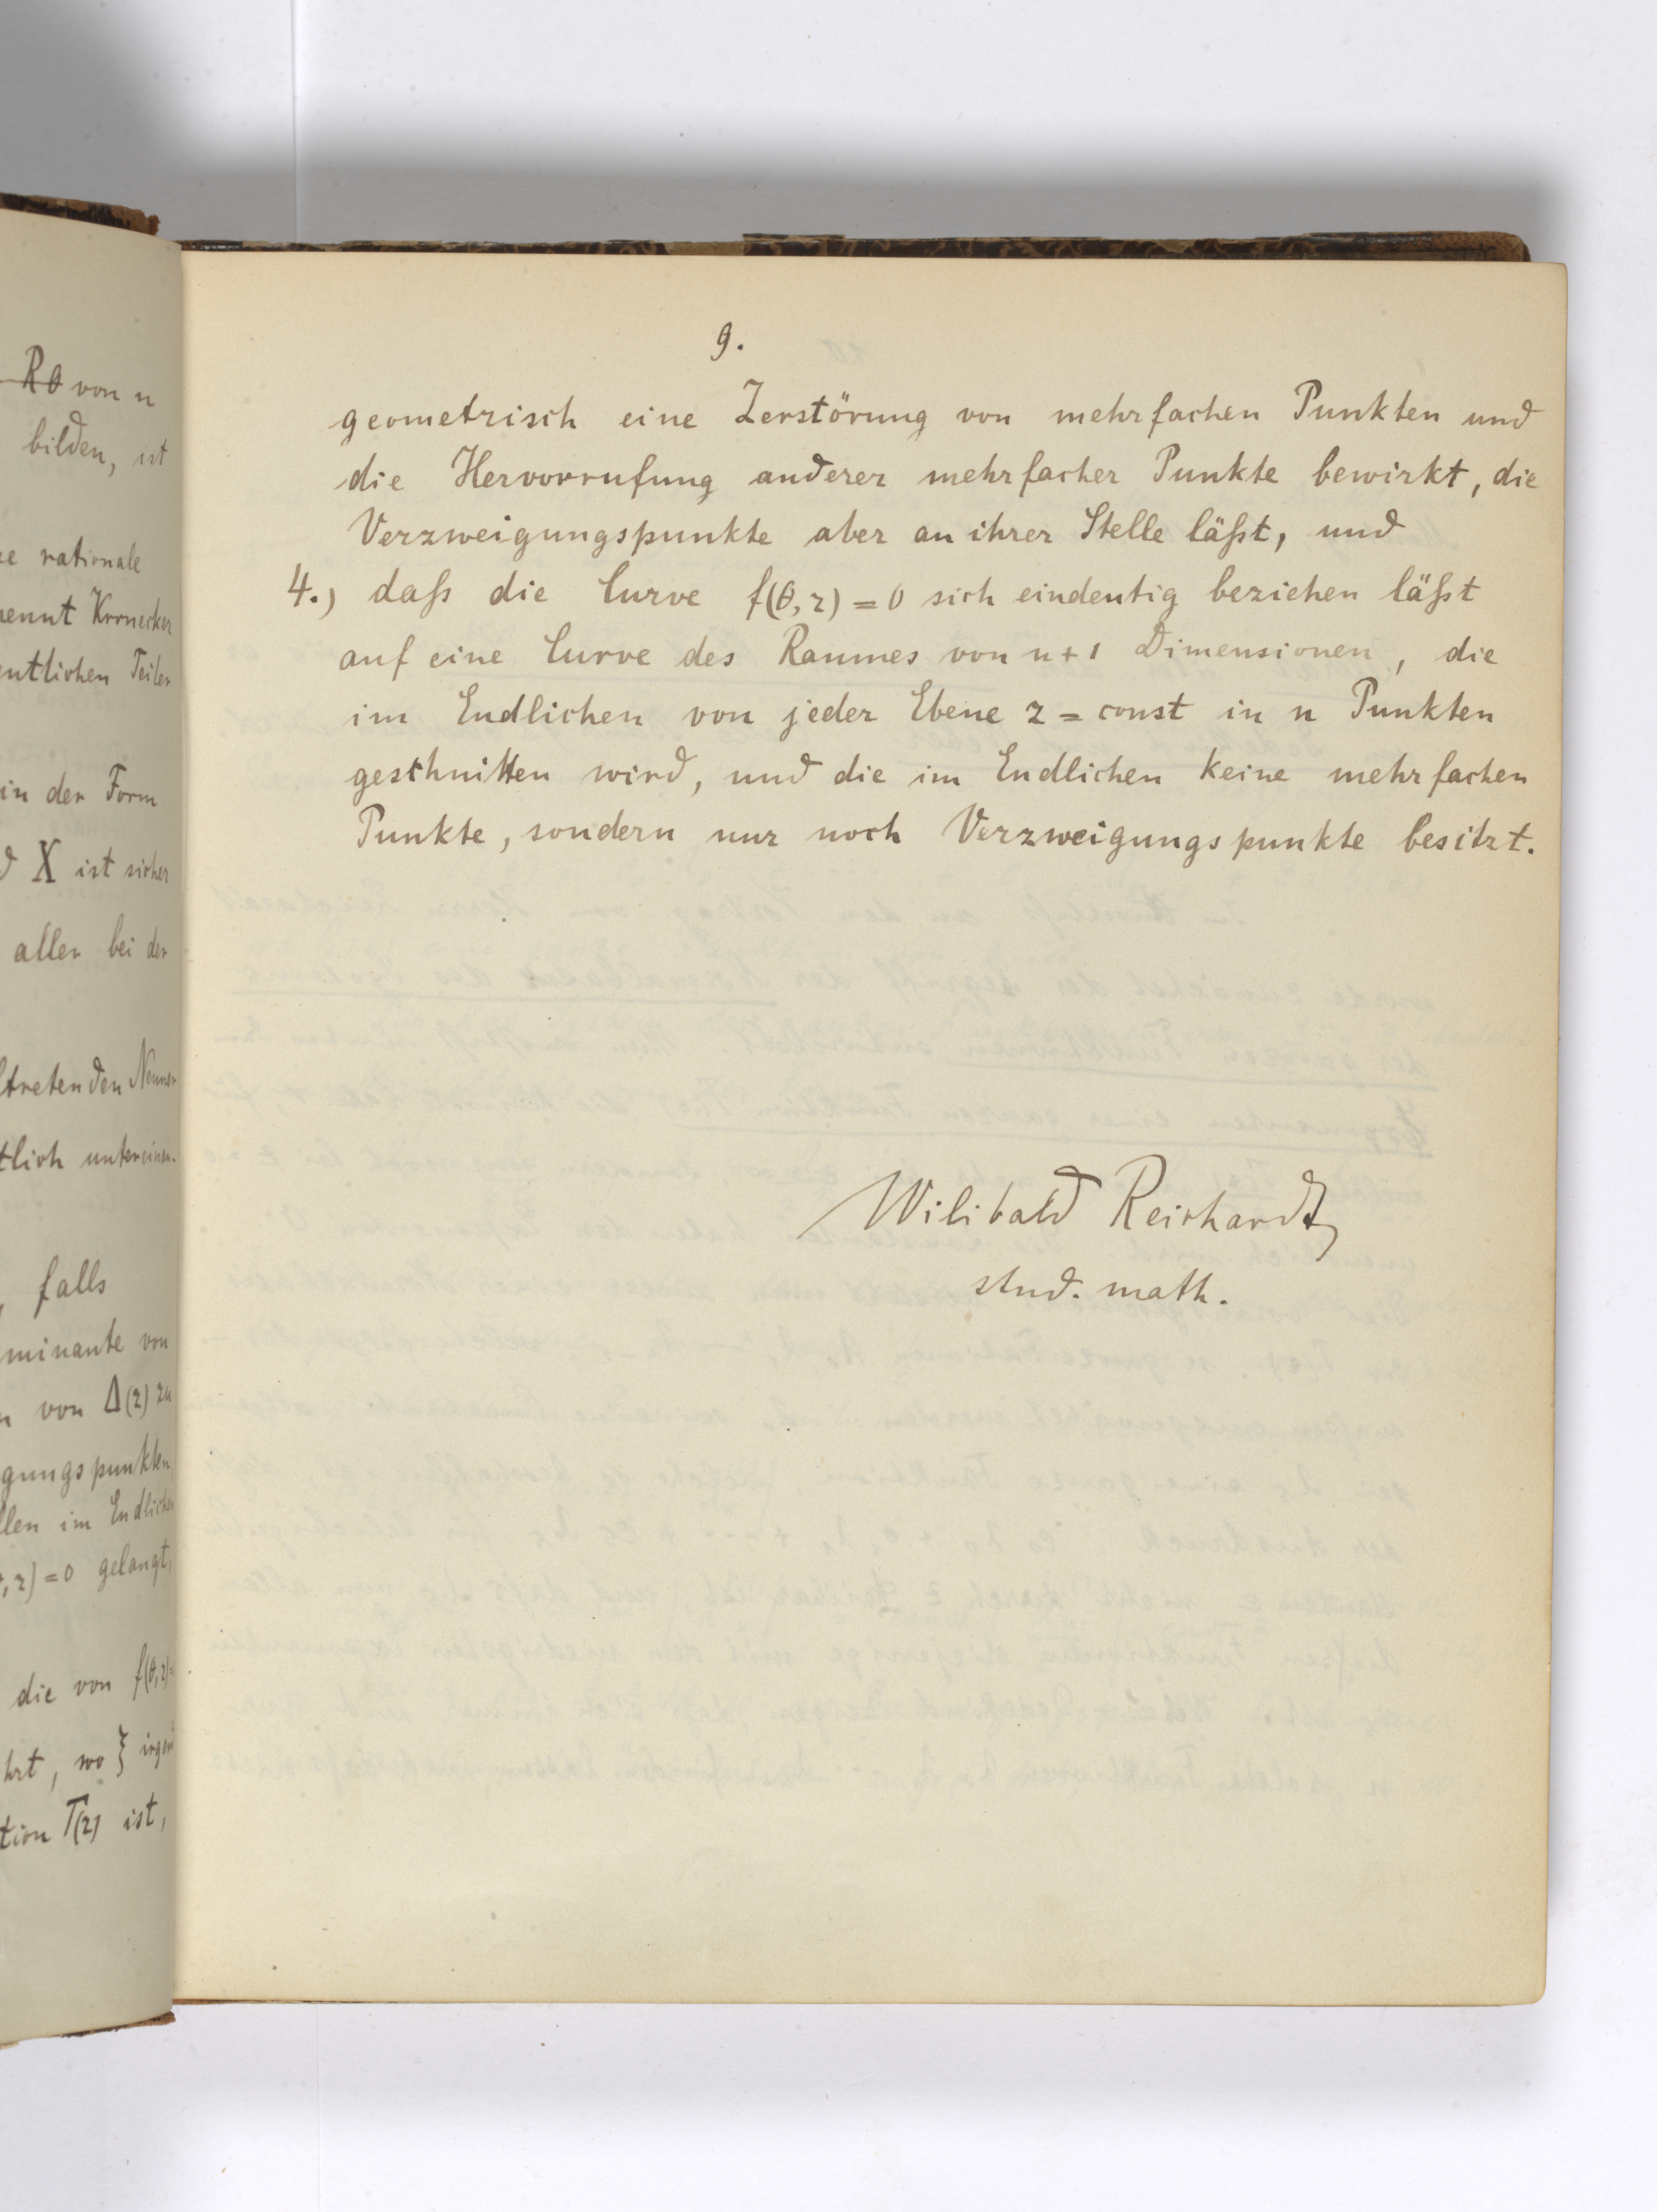 R̶θ̶ von n
bilden, ist
rationale
nennt Kronecker
entlichen Teiler
in der Form
X ist sicher
aller bei der
tretenden Nenner
tlich unterein-
falls
minante von
von Δ(z) zu
gungspunkten
llen im Endlichen
,z)=0 gelangt,
die von f(θ,z)=
hrt, wo ξ irgend
tion T(z) ist,
9.
geometrisch eine Zerstörung von mehrfachen Punkten und
die Hervorrufung anderer mehrfacher Punkte bewirkt, die
Verzweigungspunkte aber an ihrer Stelle läßt, und
4.) daß die Curve f(θ,z)=0 sich eindeutig beziehen läßt
auf eine Curve des Raumes von n+1 Dimensionen, die
im Endlichen von jeder Ebene z = const in n Punkten
geschnitten wird, und die im Endlichen keine mehrfachen
Punkte, sondern nur noch Verzweigungspunkte besitzt.
Wilibald Reichardt
stud. math.